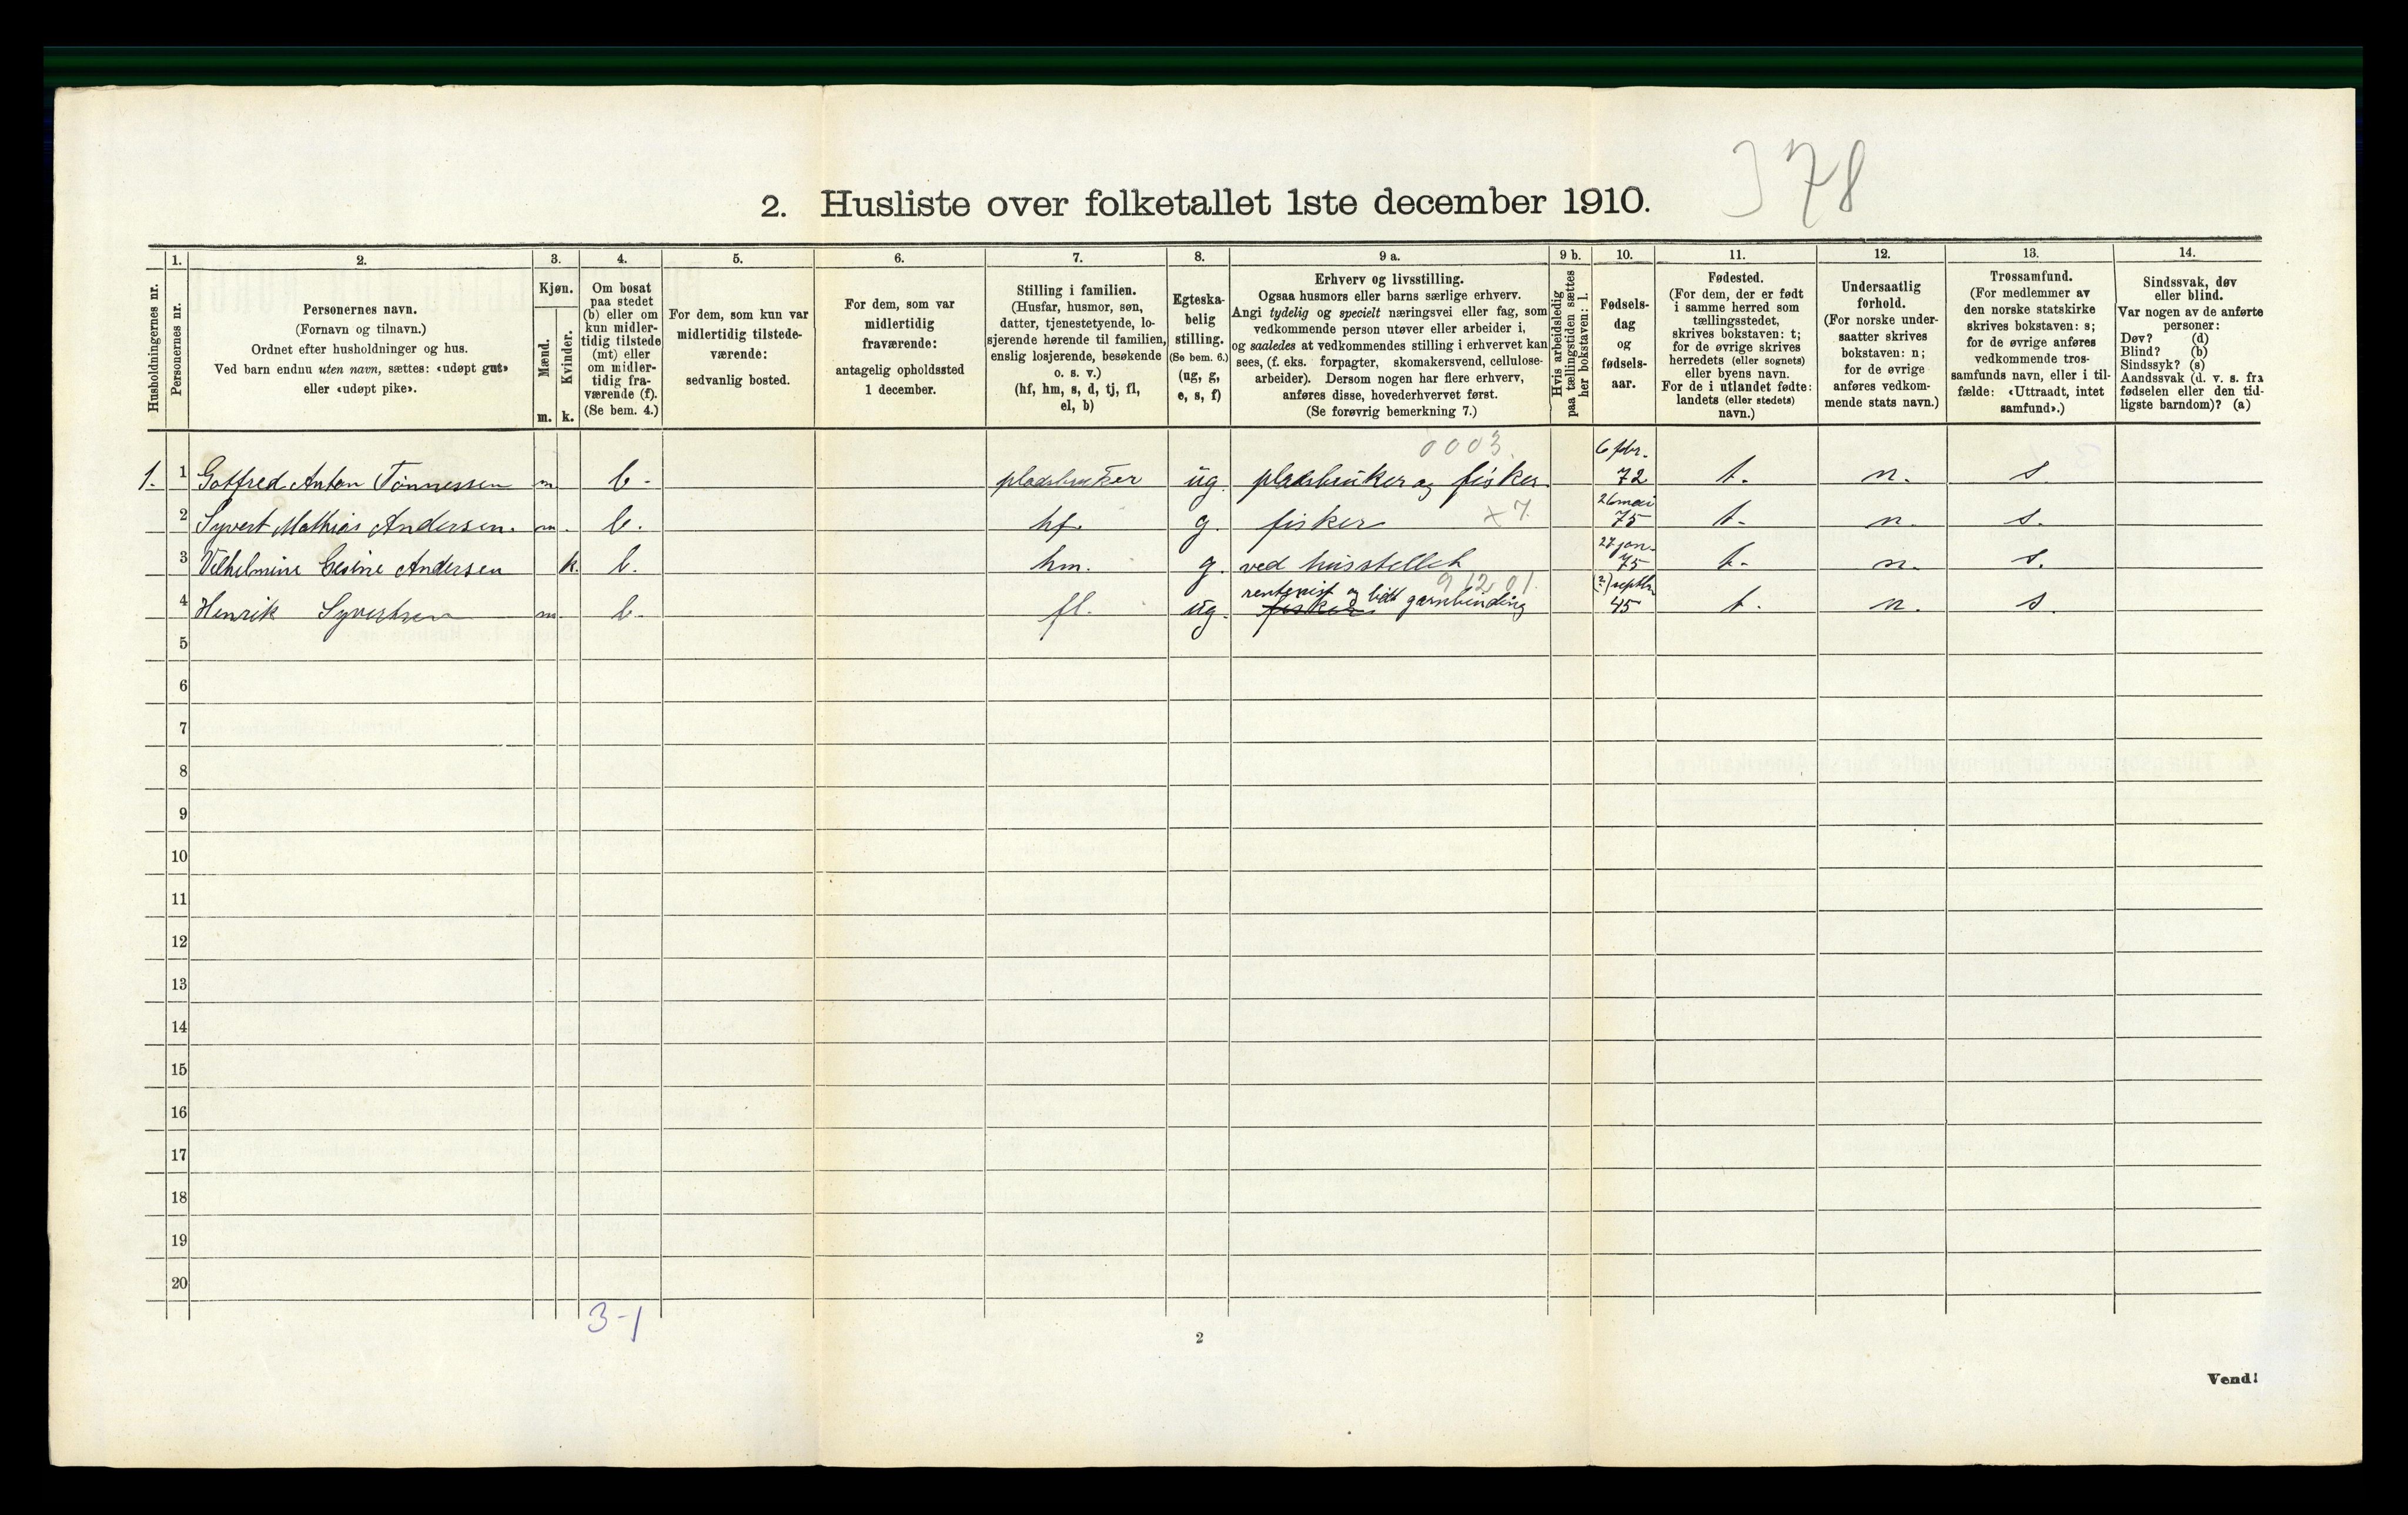 378
2. Husliste over folketallet 1ste december 1910.
Husholdningernes nr.
1.
Personernes nr.
2.
Personernes navn.
(Fornavn og tilnavn.)
Ordnet efter husholdninger og hus.
Ved barn endnu uten navn, sættes: «udøpt gut»
eller «udøpt pike».
3.
Kjøn.
Mænd.
Kvinder.
m. k.
4.
Om bosat
paa stedet
(b) eller om
kun midler-
tidig tilstede
(mt) eller
om midler-
tidig fra-
værende (f).
(Se bem. 4.)
5.
For dem, som kun var
midlertidig tilstede-
værende:
sedvanlig bosted.
6.
For dem, som var
midlertidig
fraværende:
antagelig opholdssted
1 december.
7.
Stilling i familien.
(Husfar, husmor, søn,
datter, tjenestetyende, lo-
sjerende hørende til familien,
enslig losjerende, besøkende
o. s. v.)
(hf, hm, s, d, tj, fl,
el, b)
8.
Egteska-
belig
stilling.
(Se bem. 6.)
(ug, g,
e, s, f)
9 a.
Erhverv og livsstilling.
Ogsaa husmors eller barns særlige erhverv.
Angi tydelig og specielt næringsvei eller fag, som
vedkommende person utøver eller arbeider i,
og saaledes at vedkommendes stilling i erhvervet kan
sees, (f. eks. forpagter, skomakersvend, cellulose-
arbeider). Dersom nogen har flere erhverv,
anføres disse, hovederhvervet først.
(Se forøvrig bemerkning 7.)
9 b.
Hvis arbeidsledig
paa tællingstiden sættes
her bokstaven: l.
10.
Fødsels-
dag
og
fødsels-
aar.
11.
Fødested.
(For dem, der er født
i samme herred som
tællingsstedet,
skrives bokstaven: t;
for de øvrige skrives
herredets (eller sognets)
eller byens navn.
For de i utlandet fødte:
landets (eller stedets)
navn.)
12.
Undersaatlig
forhold.
(For norske under-
saatter skrives
bokstaven: n;
for de øvrige
anføres vedkom-
mende stats navn.)
13.
Trossamfund.
(For medlemmer av
den norske statskirke
skrives bokstaven: s;
for de øvrige anføres
vedkommende tros-
samfunds navn, eller i til-
fælde: «Uttraadt, intet
samfund».)
14.
Sindssvak, døv
eller blind.
Var nogen av de anførte
personer:
Døv? (d)
Blind? (b)
Sindssyk? (s)
Aandssvak (d. v. s. fra
fødselen eller den tid-
ligste barndom)? (a)
0003 6
1. 1 Gotfred Anton Tønnessen m b. pladsbruker ug. pladsbruker og fisker. 72 t. n. s.
x7. 26 mai
2 Syvert Mathias Andersen. m. b. hf. g. fisker 75 t. n. s.
27 jan.
3 Vilhelmine Gesine Andersen k. b. hm. g. ved husstellet 75 t. n. s.
rentenist og lidt 91201. (?) septbr
4 Henrik Syvertsen m. b. fl. ug. fisker. garnbinding 45 t. n. s.
5
6
7
8
9
10
11
12
13
14
15
16
17
18
19
20
3-1
2
Vend!